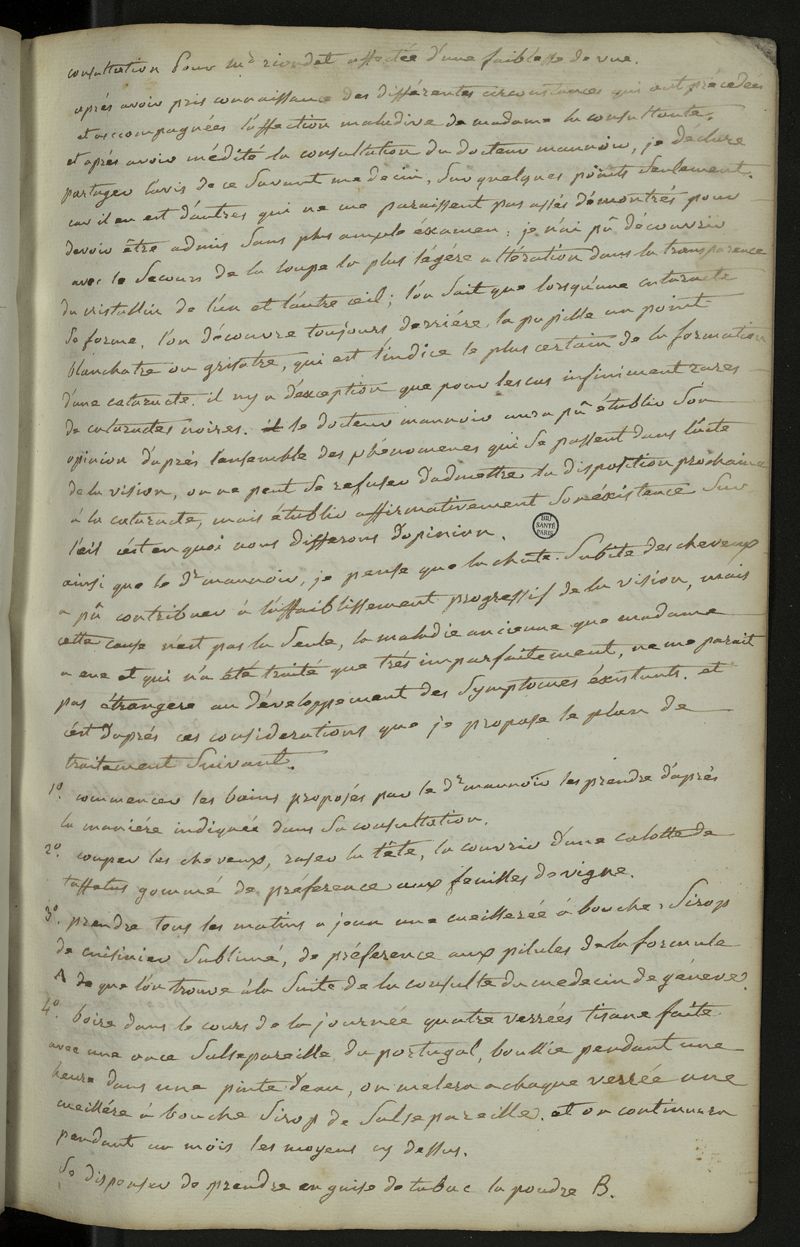 consultation pour md riondet affectée d'une faiblesse de vue.
après avoir pris connaissance des différentes circonstances qui ont précédées
et accompagnées l'affection maladive de madame la consultante.
et après avoir médité la consultation du docteur maunoir, je déclare
partager l'avis de ce savant medecin, sur quelques points seulement.
car il en est d'autres qui ne me paraissent pas assés démontrés pour
devoir être admis sans plus ample éxamen; je n'ai pû découvrir
avec le secours de la loupe la plus légére altération dans la transparence
du cristallin de l'un et l'autre œil; l'on sait que lorsqu'une cataracte
se forme, l'on découvre toujours derriére la pupille un point
blanchatre ou grisatre, qui est l'indice le plus certain de la formation
d'une cataracte. il n'y a d'exception que pour les cas infiniment rares
de cataractes noires. le docteur maunoir aura pû établir son
opinion d'après l'ensemble des phénomenes qui se passent dans l'acte
de la vision, on ne peut se refuser d'admettre la disposition prochaine
à la cataracte, mais établir affirmativement son éxistence sur
l'œil c'est en quoi nous differons d'opinion.
BIU SANTÉ PARIS
ainsi que le dr maunoir, je pense que la chute subite des cheveux
a pû contribuer à l'affaiblissement progressif de la vision, mais
cette cause n'est pas la seule, la maladie ancienne que madame
a eue et qui n'a été traité que très imparfaitement, ne me parait
pas étrangere au développement des symptomes éxistants. et
c'est d'après ces considerations que je propose le plan de
traitement suivant.
1o. commencer les bains proposés par le dr maunoir les prendre d'après
la maniére indiquée dans sa consultation.
2o. couper les cheveux, raser la tête, la couvrir d'une calotte de
taffetas gommé de préférence aux feuilles de vigne.
3o. prendre tous les matins a jeun une cueilleréé à bouche, sirop
de cuisinier sublimé, de préference aux pilules de la formule
A de que l'on trouve à la suite de la consulte du medecin de géneve.
4o. boire dans le cours de la journée quatre verrées tisane faite
avec une once salsepareille du portugal, bouillie pendant une
heure dans une pinte d'eau, on melera a chaque verrée une
cueillére à bouche sirop de salsepareille. et on continuera
pendant un mois les moyens cy dessus.
se dispenser de prendre en guise de tabac la poudre B.